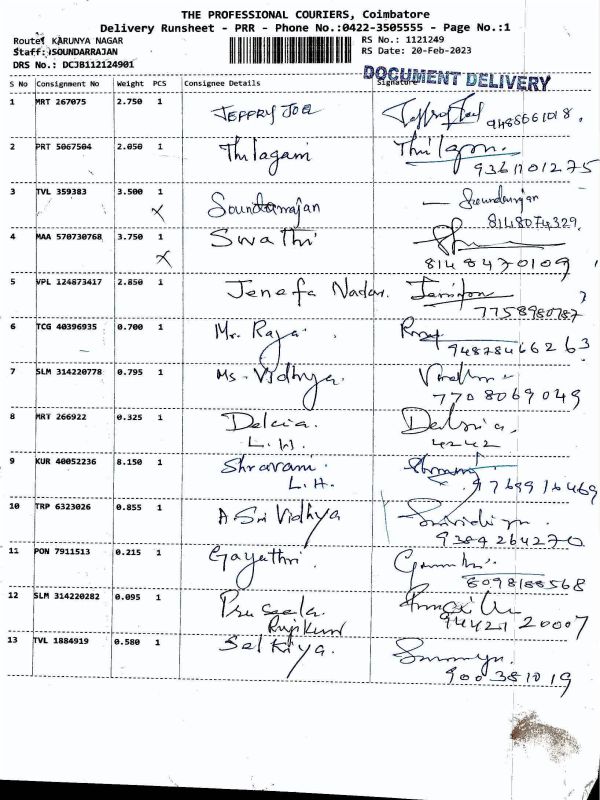 THE PROFESSIONAL COURIERS, Coimbatore
Delivery Runsheet - PRR - Phone No.:0422-3505555 - Page No.:1
Route: KARUNYA NAGAR
RS No.: 1121249
Staff: SOUNDARRAJAN
RS Date: 20-Feb-2023
DRS No.: DCJB112124901
DOCUMENT DELIVERY
S No Consignment No Weight PCS Consignee Details Signature
1 MRT 267075 2.750 1 JEFFRY JOEL
2 PRT 5067504 2.050 1 Thilagam
9361101275
3 TVL 359383 3.500 1 Soundarrajan Soundarrajan
X 8148074329
4 MAA 570730768 3.750 1 Swathi
X 8148470109
5 VPL 124873417 2.850 1 Jenefa Nadar
7758980787
6 TCG 40396935 0.700 1 Mr. Raja
9487846626 3
7 SLM 314220778 0.795 1 Ms. Vidhya
7708069049
8 MRT 266922 0.325 1
L.H. 4242
9 KUR 40052236 8.150 1 Shravani
L.H. 9769916469
10 TRP 6323026 0.855 1 A Sri Vidhya
9384264270
11 PON 7911513 0.215 1 Gayathri
8098188568
12 SLM 314220282 0.095 1
94421 20007
13 TVL 1884919 0.580 1
900381019